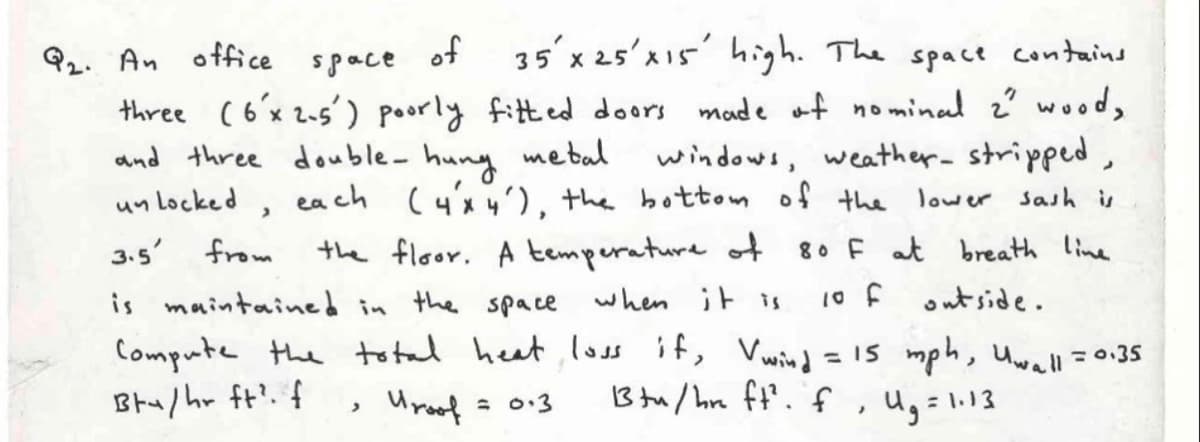 Q2. An office space of 35' x 25' x 15' high. The space contains
three (6' x 2.5') poorly fitted doors made of nominal 2" wood,
and three double-hung metal windows, weather-stripped,
unlocked, each (4' x 4'), the bottom of the lower sash is
3.5' from the floor. A temperature of 80 F at breath line
is maintained in the space when it is 10 F outside.
Compute the total heat loss if, Vwind = 15 mph, Uwall = 0.35
Btu/hr ft². f , Uroof = 0.3 Btu/hr ft². f , Ug = 1.13